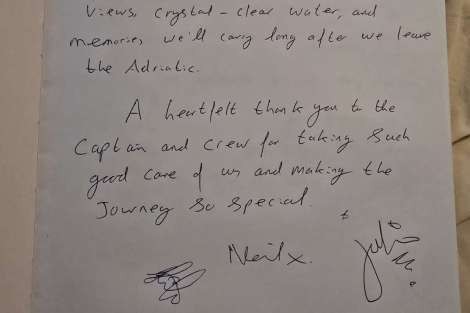 Views, crystal-clear water, and
memories we'll carry long after we leave
the Adriatic.
A heartfelt thank you to the
Captain and crew for taking such
good care of us and making the
Journey so special.
Neil x.